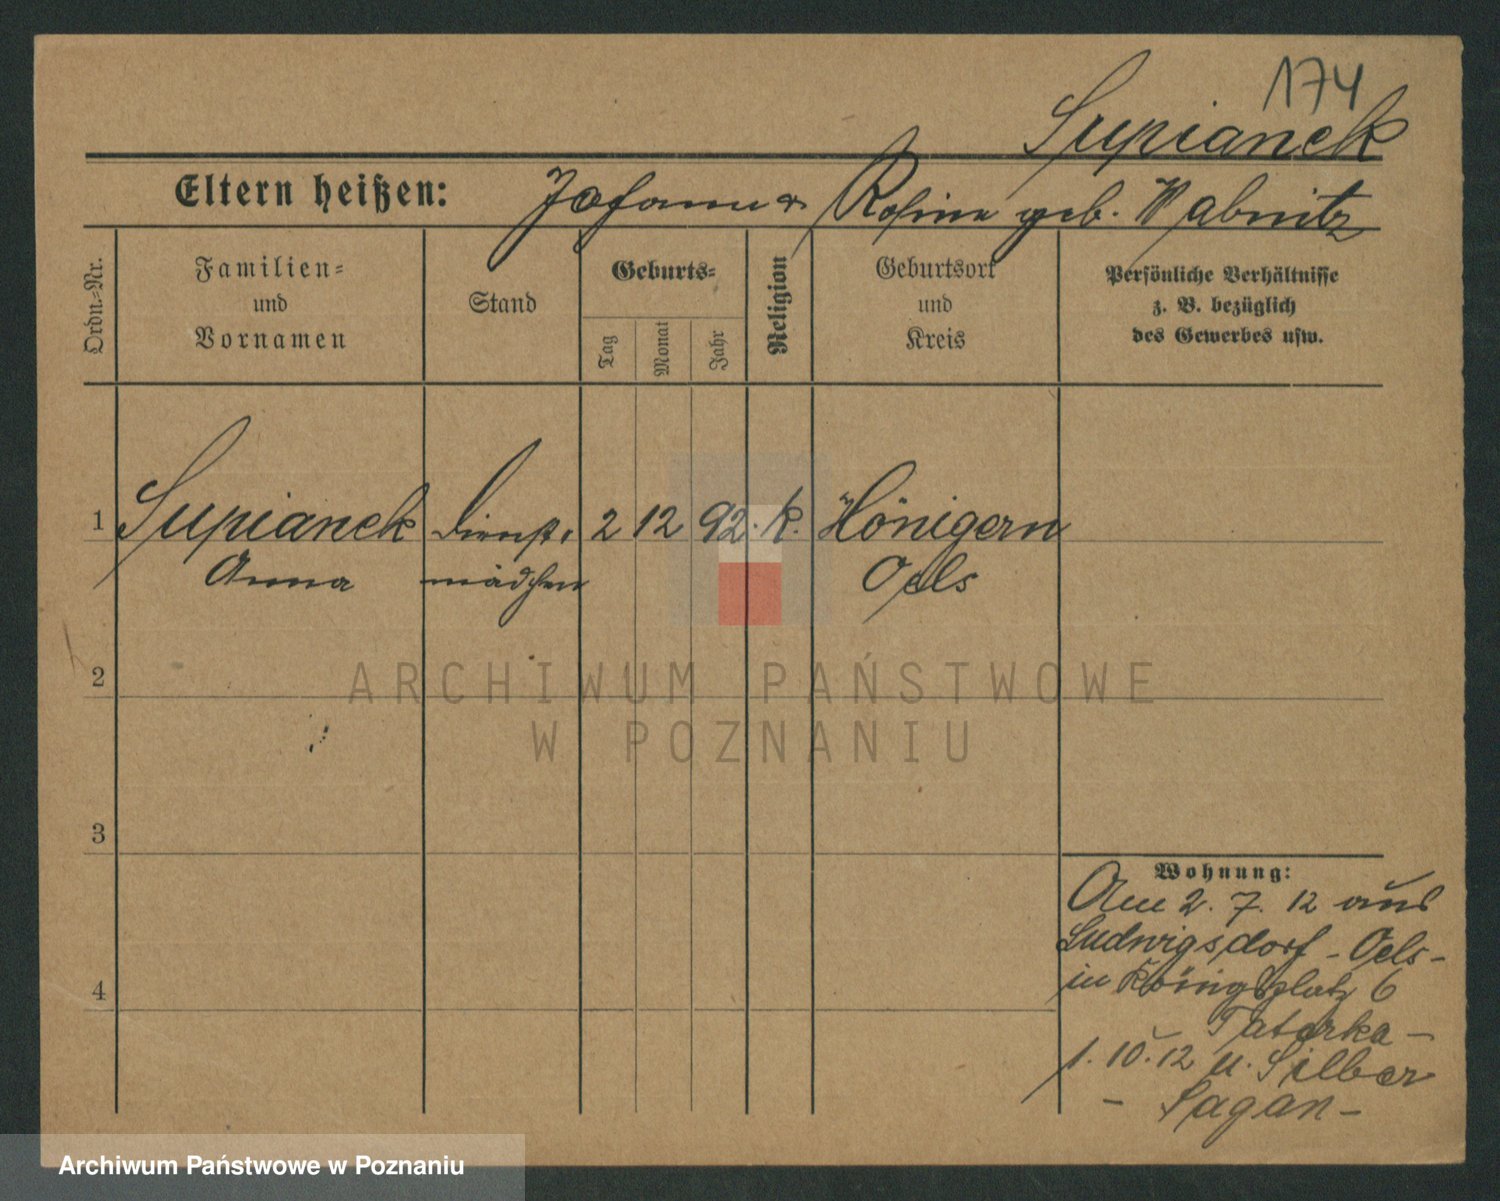 174
Supianek
Eltern heißen: Johann & Rosina geb. Wabnitz
Ordn.-Nr.
Familien-
und
Vornamen
Stand
Geburts-
Tag
Monat
Jahr
Religion
Geburtsort
und
Kreis
Persönliche Verhältnisse
z. B. bezüglich
des Gewerbes usw.
1 Supianek Dienst- 2 12 92. k. Hönigern
Anna mädchen Oels
2
3
4
Wohnung:
Am 2. 7. 12 aus
Ludwigsdorf - Oels -
in Königsplatz 6
Tatarka -
1. 10. 12 n. Silber
- Sagan -
ARCHIWUM PAŃSTWOWE
W POZNANIU
Archiwum Państwowe w Poznaniu